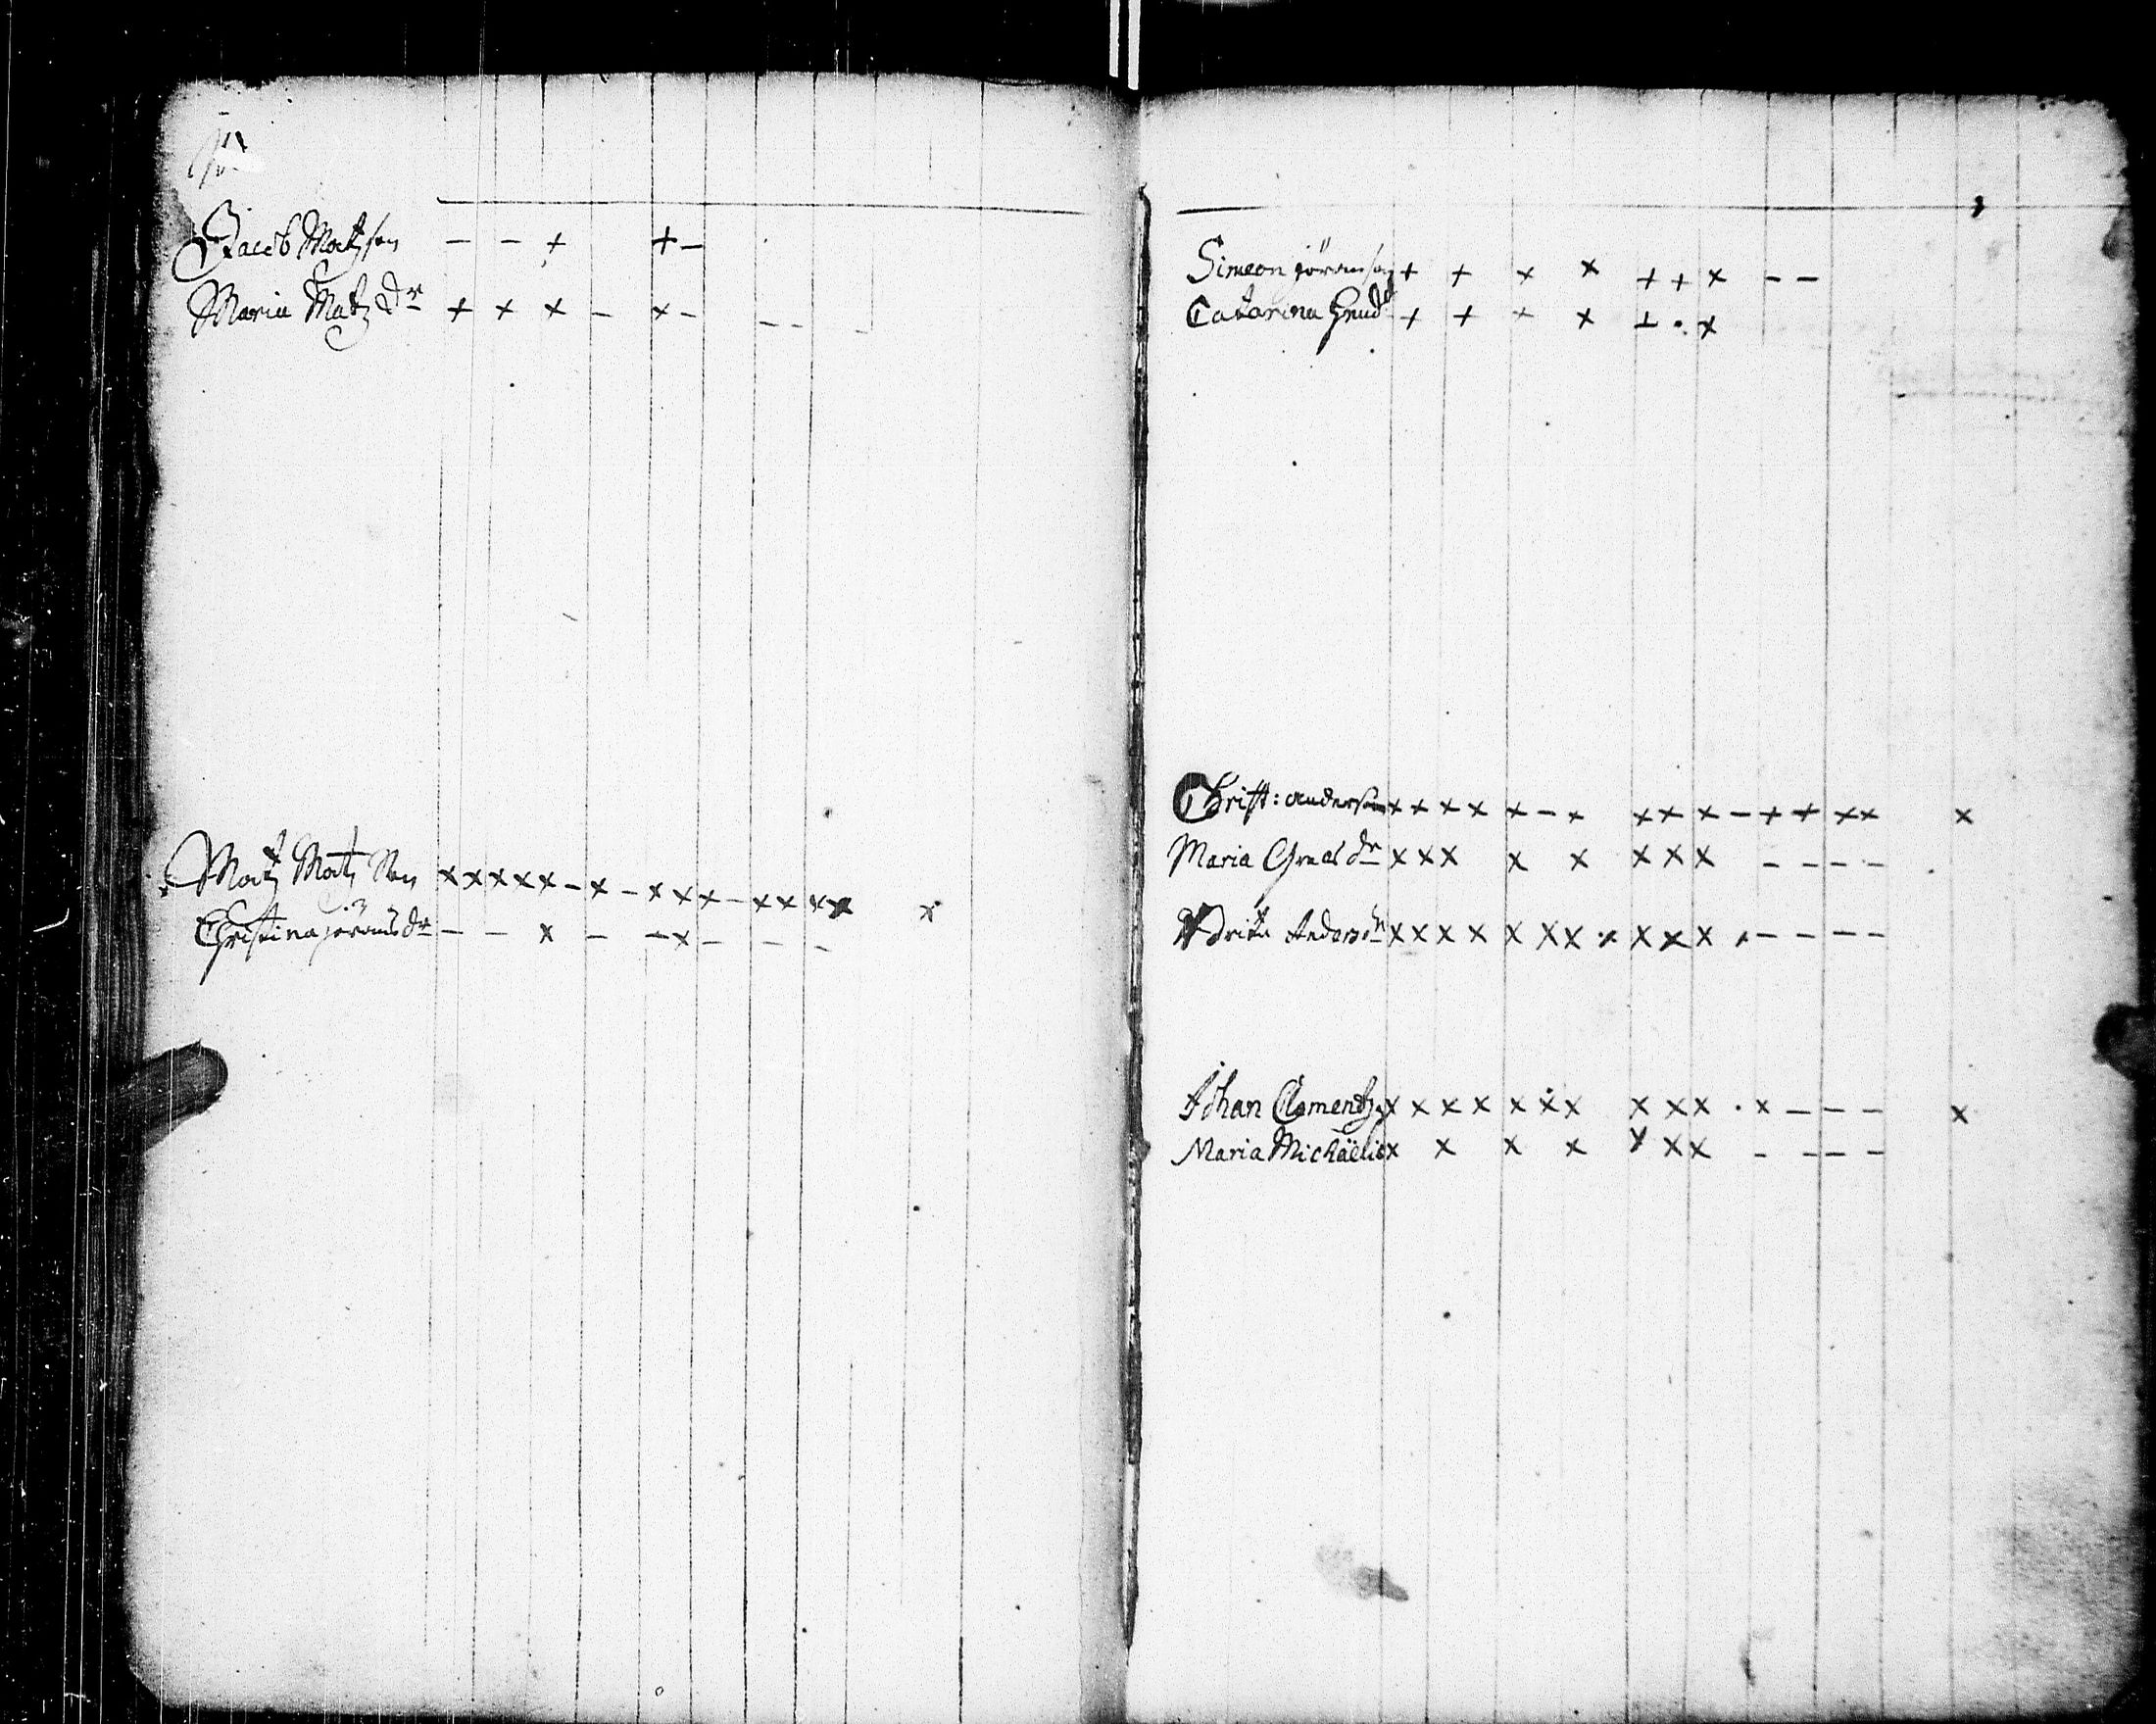 Jacob Matzson – – + + –
Maria Matz dr + x x – x – – – –
Matz Matz Son x x x x x – x – x x x – x x x x x
Christina jörans dr – – x – – x – – – –
Simeon jöranson + + x x + + x – –
Catarina + + + x + . x
Christ: anderson x x x x x – x x x x – + + x x x
Maria dr x x x x x x x x – – – –
Anders dr x x x x x x x x x x x – – – – –
Johan Clementz x x x x x x x x x x . x – – – x
Maria Michäelis x x x x x x x – – – –